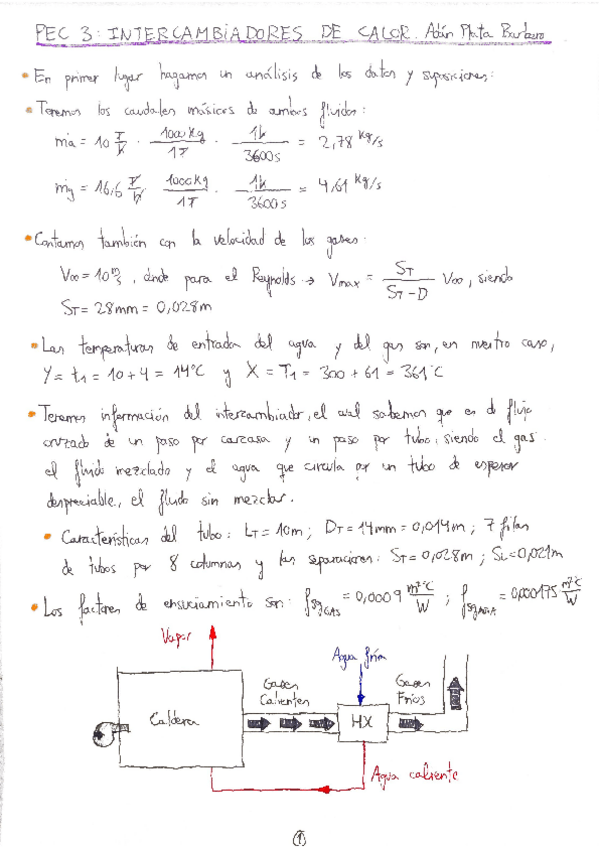 PEC 3: INTERCAMBIADORES DE CALOR. Adán Plata Barbero
• En primer lugar hagamos un análisis de los datos y suposiciones:
• Tenemos los caudales másicos de ambos fluidos:
ṁa = 10 T/h · 1000 kg/1T · 1h/3600s = 2,78 kg/s
ṁg = 16,6 T/h · 1000 kg/1T · 1h/3600s = 4,61 kg/s
• Contamos también con la velocidad de los gases:
V∞ = 10 m/s, donde para el Reynolds → Vmax = ST/(ST - D) V∞, siendo
ST = 28mm = 0,028m
• Las temperaturas de entrada del agua y del gas son, en nuestro caso,
Y = t1 = 10 + 4 = 14°C y X = T1 = 300 + 61 = 361°C
• Tenemos información del intercambiador, el cual sabemos que es de flujo
cruzado de un paso por carcasa y un paso por tubo, siendo el gas
el fluido mezclado y el agua que circula por un tubo de espesor
despreciable, el fluido sin mezclar.
• Características del tubo: LT = 10m; DT = 14mm = 0,014m; 7 filas
de tubos por 8 columnas y las separaciones: ST = 0,028m; SL = 0,021m
• Los factores de ensuciamiento son: fsgGAS = 0,0009 m²°C/W; fsgAGUA = 0,000175 m²°C/W
Vapor
Agua fría
Gases Calientes
Gases Fríos
Caldera
HX
Agua caliente
1